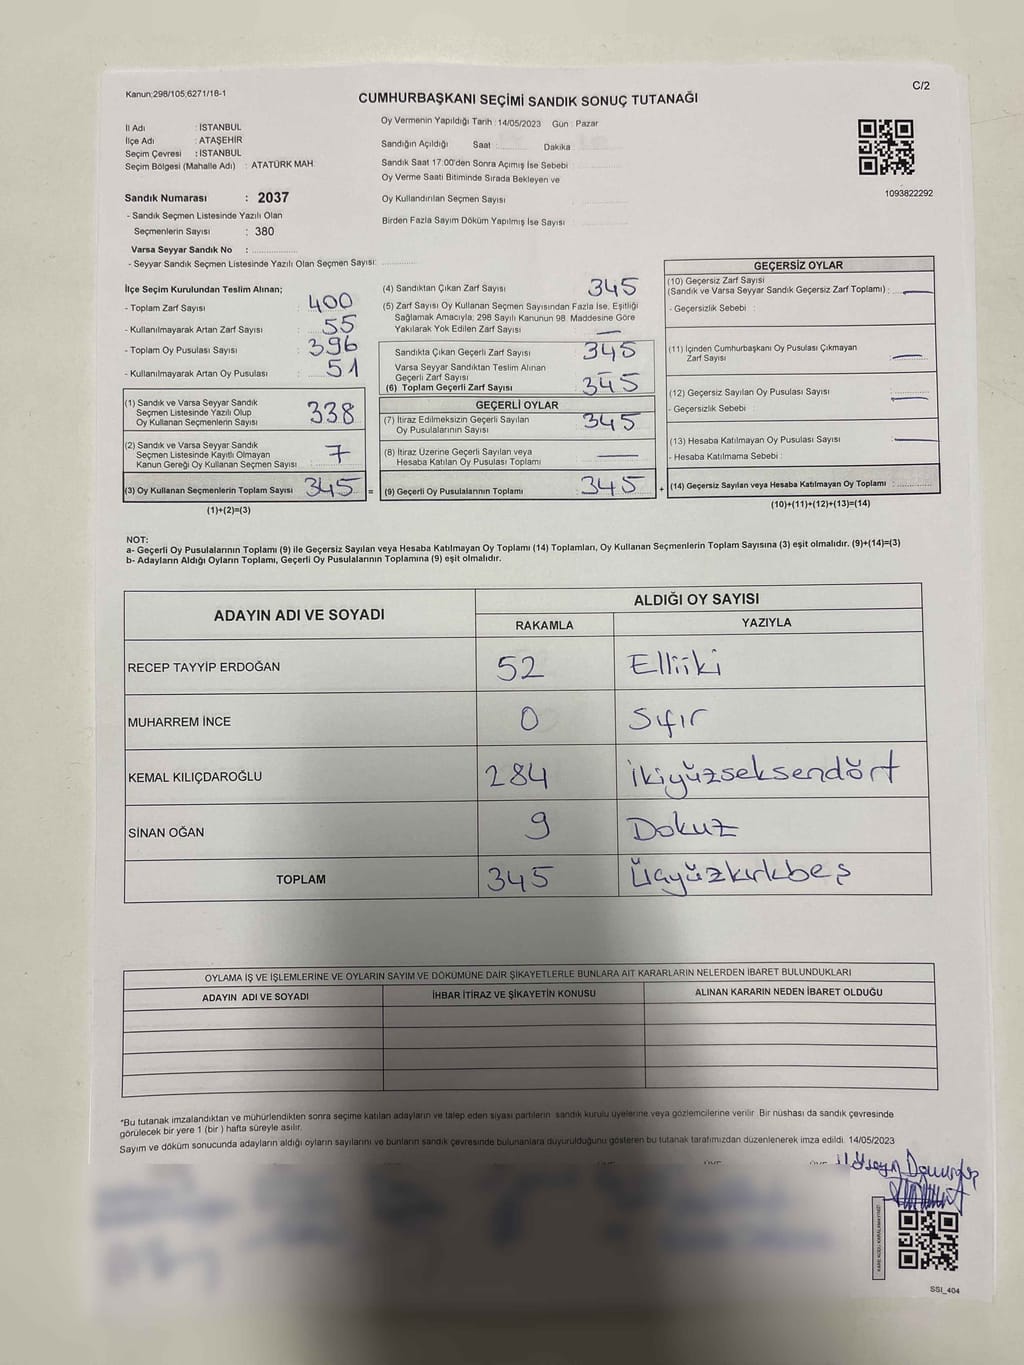 Kanun;298/105,6271/18-1
C/2
CUMHURBAŞKANI SEÇİMİ SANDIK SONUÇ TUTANAĞI
İl Adı : İSTANBUL
İlçe Adı : ATAŞEHİR
Seçim Çevresi : İSTANBUL
Seçim Bölgesi (Mahalle Adı) : ATATÜRK MAH.
Sandık Numarası : 2037
- Sandık Seçmen Listesinde Yazılı Olan
Seçmenlerin Sayısı : 380
Varsa Seyyar Sandık No :
- Seyyar Sandık Seçmen Listesinde Yazılı Olan Seçmen Sayısı:
Oy Vermenin Yapıldığı Tarih : 14/05/2023 Gün : Pazar
Sandığın Açıldığı Saat : Dakika
Sandık Saat 17:00'den Sonra Açımış İse Sebebi :
Oy Verme Saati Bitiminde Sırada Bekleyen ve
Oy Kullandırılan Seçmen Sayısı :
Birden Fazla Sayım Döküm Yapılmış İse Sayısı :
1093822292
İlçe Seçim Kurulundan Teslim Alınan;
- Toplam Zarf Sayısı : 400
- Kullanılmayarak Artan Zarf Sayısı : 55
- Toplam Oy Pusulası Sayısı : 396
- Kullanılmayarak Artan Oy Pusulası : 51
(1) Sandık ve Varsa Seyyar Sandık
Seçmen Listesinde Yazılı Olup
Oy Kullanan Seçmenlerin Sayısı : 338
(2) Sandık ve Varsa Seyyar Sandık
Seçmen Listesinde Kayıtlı Olmayan
Kanun Gereği Oy Kullanan Seçmen Sayısı : 7
(3) Oy Kullanan Seçmenlerin Toplam Sayısı : 345 =
(1)+(2)=(3)
(4) Sandıktan Çıkan Zarf Sayısı : 345
(5) Zarf Sayısı Oy Kullanan Seçmen Sayısından Fazla İse, Eşitliği
Sağlamak Amacıyla; 298 Sayılı Kanunun 98. Maddesine Göre
Yakılarak Yok Edilen Zarf Sayısı : —
Sandıkta Çıkan Geçerli Zarf Sayısı : 345
Varsa Seyyar Sandıktan Teslim Alınan
Geçerli Zarf Sayısı : —
(6) Toplam Geçerli Zarf Sayısı : 345
GEÇERLİ OYLAR
(7) İtiraz Edilmeksizin Geçerli Sayılan
Oy Pusulalarının Sayısı : 345
(8) İtiraz Üzerine Geçerli Sayılan veya
Hesaba Katılan Oy Pusulası Toplamı : —
(9) Geçerli Oy Pusulalarının Toplamı : 345 +
GEÇERSİZ OYLAR
(10) Geçersiz Zarf Sayısı
(Sandık ve Varsa Seyyar Sandık Geçersiz Zarf Toplamı) : —
- Geçersizlik Sebebi :
(11) İçinden Cumhurbaşkanı Oy Pusulası Çıkmayan
Zarf Sayısı : —
(12) Geçersiz Sayılan Oy Pusulası Sayısı : —
- Geçersizlik Sebebi :
(13) Hesaba Katılmayan Oy Pusulası Sayısı : —
- Hesaba Katılmama Sebebi :
(14) Geçersiz Sayılan veya Hesaba Katılmayan Oy Toplamı :
(10)+(11)+(12)+(13)=(14)
NOT:
a- Geçerli Oy Pusulalarının Toplamı (9) ile Geçersiz Sayılan veya Hesaba Katılmayan Oy Toplamı (14) Toplamları, Oy Kullanan Seçmenlerin Toplam Sayısına (3) eşit olmalıdır. (9)+(14)=(3)
b- Adayların Aldığı Oyların Toplamı, Geçerli Oy Pusulalarının Toplamına (9) eşit olmalıdır.
ADAYIN ADI VE SOYADI
ALDIĞI OY SAYISI
RAKAMLA YAZIYLA
RECEP TAYYİP ERDOĞAN 52 Elliiki
MUHARREM İNCE 0 Sıfır
KEMAL KILIÇDAROĞLU 284 ikiyüzseksendört
SİNAN OĞAN 9 Dokuz
TOPLAM 345 Üçyüzkırkbeş
OYLAMA İŞ VE İŞLEMLERİNE VE OYLARIN SAYIM VE DÖKÜMÜNE DAİR ŞİKAYETLERLE BUNLARA AİT KARARLARIN NELERDEN İBARET BULUNDUKLARI
ADAYIN ADI VE SOYADI İHBAR İTİRAZ VE ŞİKAYETİN KONUSU ALINAN KARARIN NEDEN İBARET OLDUĞU
*Bu tutanak imzalandıktan ve mühürlendikten sonra seçime katılan adayların ve talep eden siyasi partilerin sandık kurulu üyelerine veya gözlemcilerine verilir. Bir nüshası da sandık çevresinde
görülecek bir yere 1 (bir ) hafta süreyle asılır.
Sayım ve döküm sonucunda adayların aldığı oyların sayılarını ve bunların sandık çevresinde bulunanlara duyurulduğunu gösteren bu tutanak tarafımızdan düzenlenerek imza edildi. 14/05/2023
SSI_404